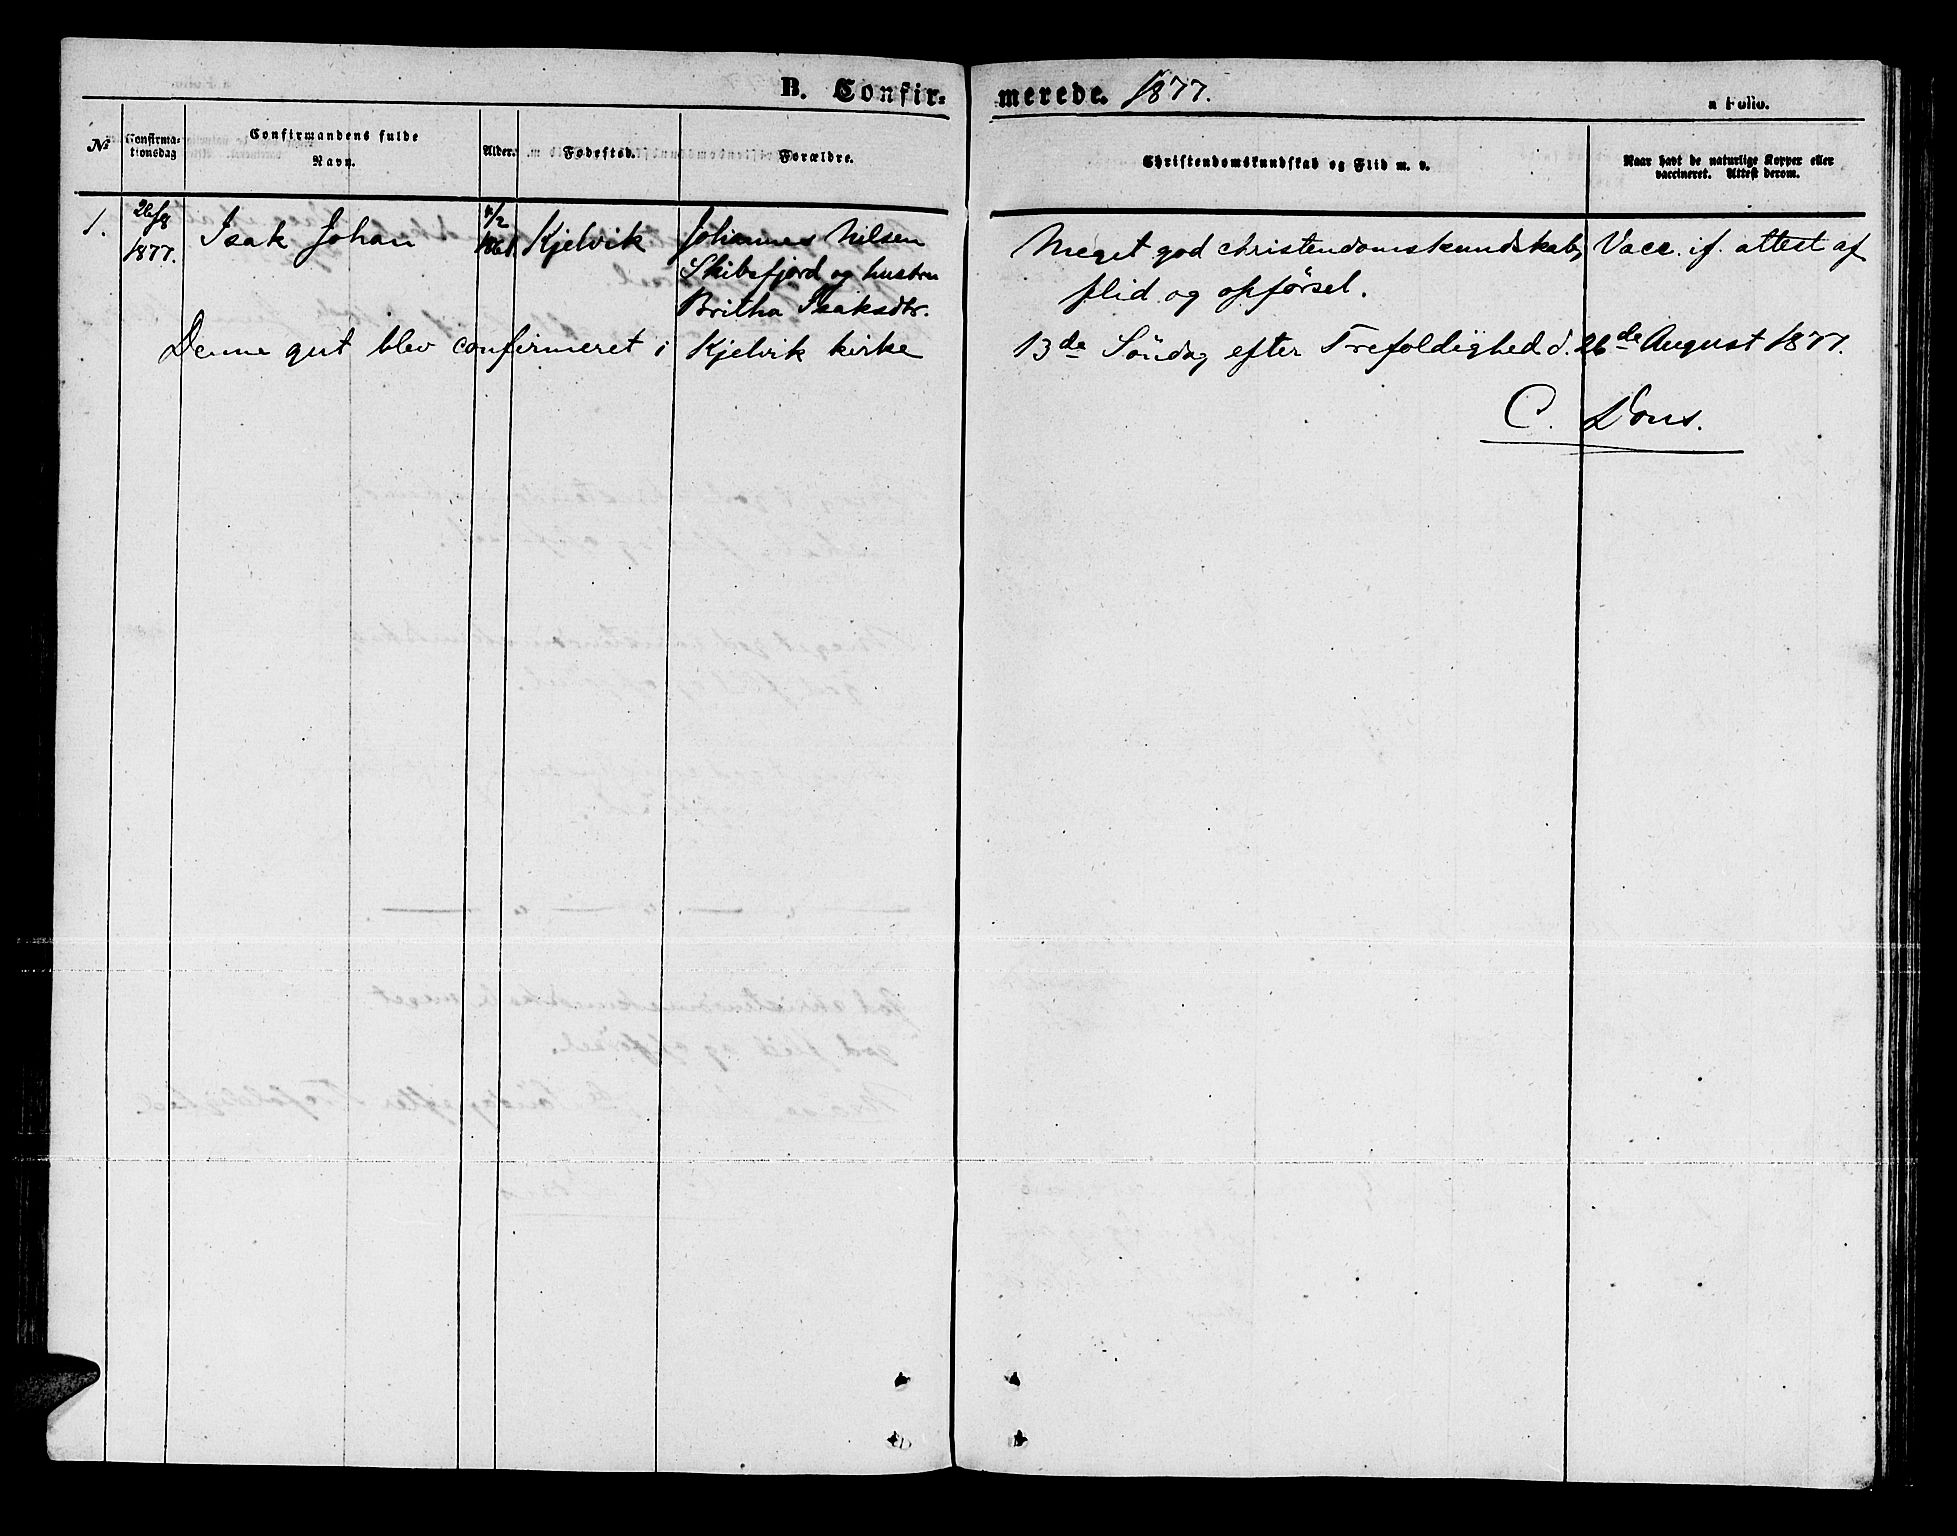 B. Confirmerede. 1877.
a Folio.
No Confirmationsdag Confirmandens fulde Navn. Alder. Fødested. Forældre. Christendomskundskab og Flid m. v. Naar havt de naturlige Kopper eller vaccineret. Attest derom.
1. 26/8 Isak Johan Kjelvik Johannes Nilsen Meget god christendomskundskab, Vacc. if. attest af
1877. Skibsfjord og hustru flid og opførsel.
Britha Isaksdtr.
Denne gut blev confirmeret i Kjelvik kirke 13de Söndag efter Trefoldighed d. 26de August 1877.
C. Dons.